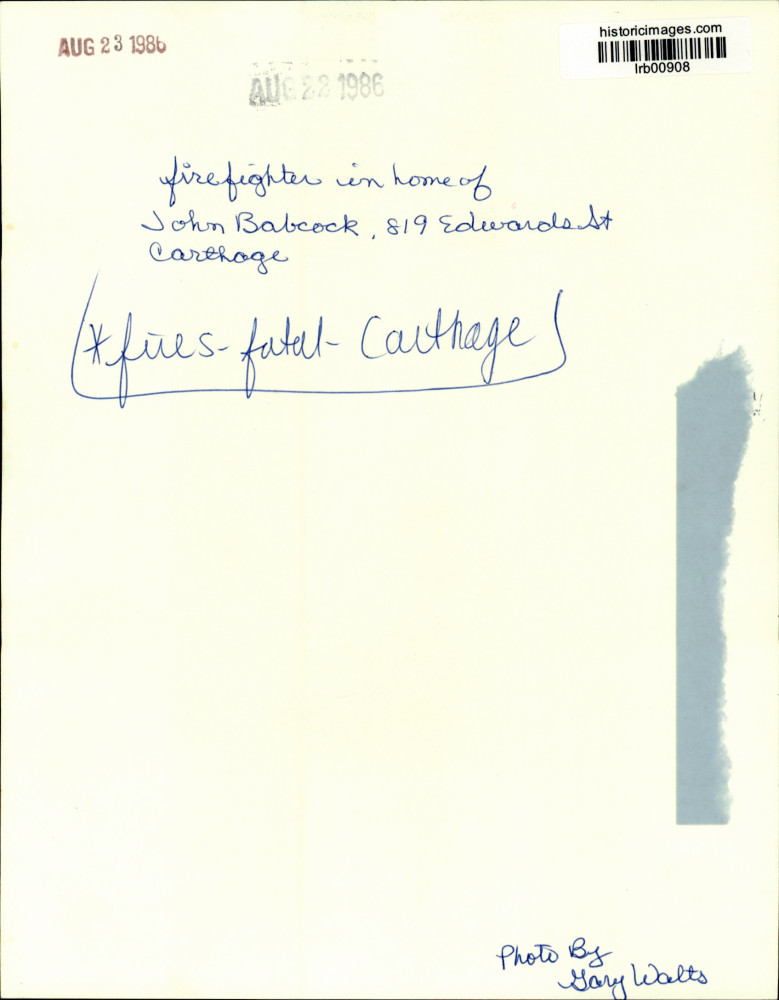 AUG 23 1986
historicimages.com
lrb00908
AUG 22 1986
firefighter in home of
John Babcock, 819 Edwards St
Carthage
*fires-fatal- Carthage
Photo By
Gary Walts